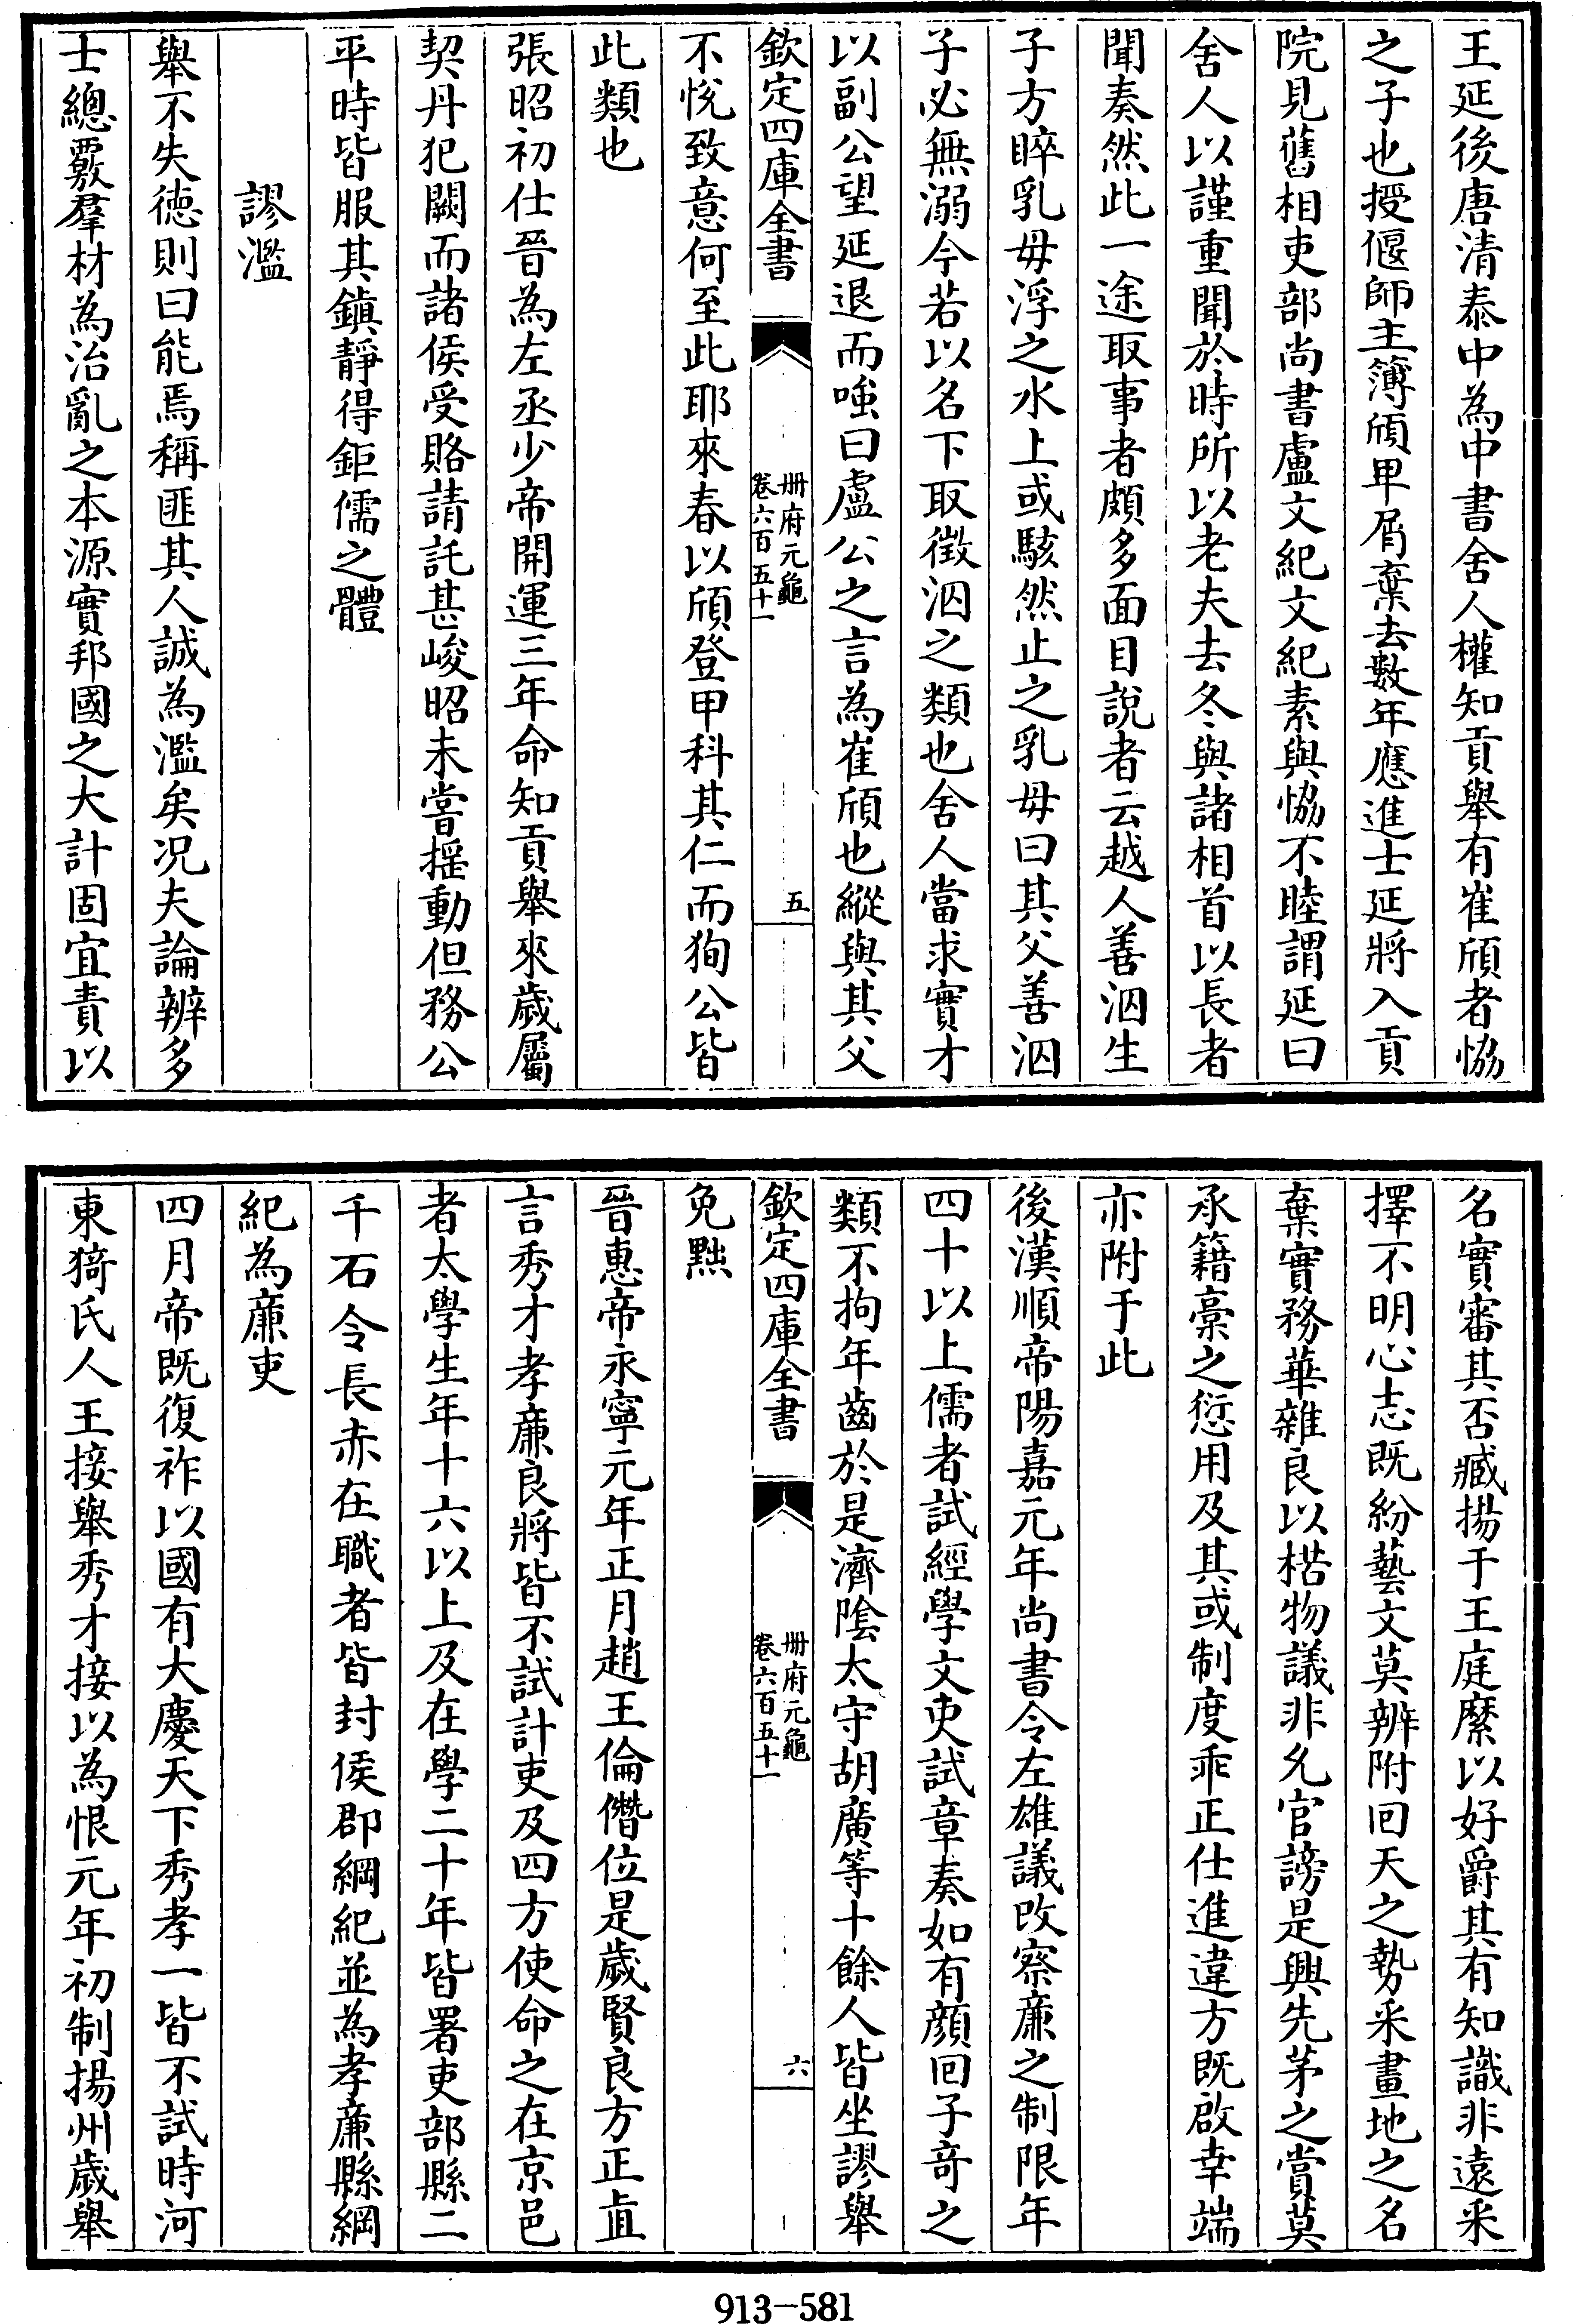 王延後唐清泰中為中書舍人權知貢舉有崔頎者恊
之子也授偃師主簿頎畀屑棄去數年應進士延將入貢
院見舊相吏部尚書盧文紀文紀素與恊不睦謂延曰
舍人以謹重聞於時所以老夫去冬與諸相首以長者
聞奏然此一途取事者頗多面目說者云越人善泅生
子方晬乳母浮之水上或駭然止之乳母曰其父善泅
子必無溺今若以名下取徵泅之類也舍人當求實才
以副公望延退而嗤曰盧公之言為崔頎也縱與其父
欽定四庫全書
冊府元龜
卷六百五十一
五
不悅致意何至此耶來春以頎登甲科其仁而狥公皆
此類也
張昭初仕晉為左丞少帝開運三年命知貢舉來歲屬
契丹犯闕而諸侯受賂請託甚峻昭未嘗揺動但務公
平時皆服其鎮靜得鉅儒之體
謬濫
舉不失徳則曰能焉稱匪其人誠為濫矣况夫論辨多
士總覈羣材為治亂之本源實邦國之大計固宜責以
名實審其否臧揚于王庭縻以好爵其有知識非遠采
擇不明心志既紛藝文莫辨附回天之勢采畫地之名
棄實務華雜良以楛物議非允官謗是興先茅之賞莫
承籍稾之愆用及其或制度乖正仕進違方既啟幸端
亦附于此
後漢順帝陽嘉元年尚書令左雄議改察廉之制限年
四十以上儒者試經學文吏試章奏如有顔回子竒之
類不拘年齒於是濟隂太守胡廣等十餘人皆坐謬舉
欽定四庫全書
冊府元龜
卷六百五十一
六
免黜
晉惠帝永寧元年正月趙王倫僭位是歲賢良方正直
言秀才孝廉良將皆不試計吏及四方使命之在京邑
者太學生年十六以上及在學二十年皆署吏部縣二
千石令長赤在職者皆封侯郡綱紀並為孝廉縣綱
紀為廉吏
四月帝既復祚以國有大慶天下秀孝一皆不試時河
東猗氏人王接舉秀才接以為恨元年初制揚州歲舉
913-581